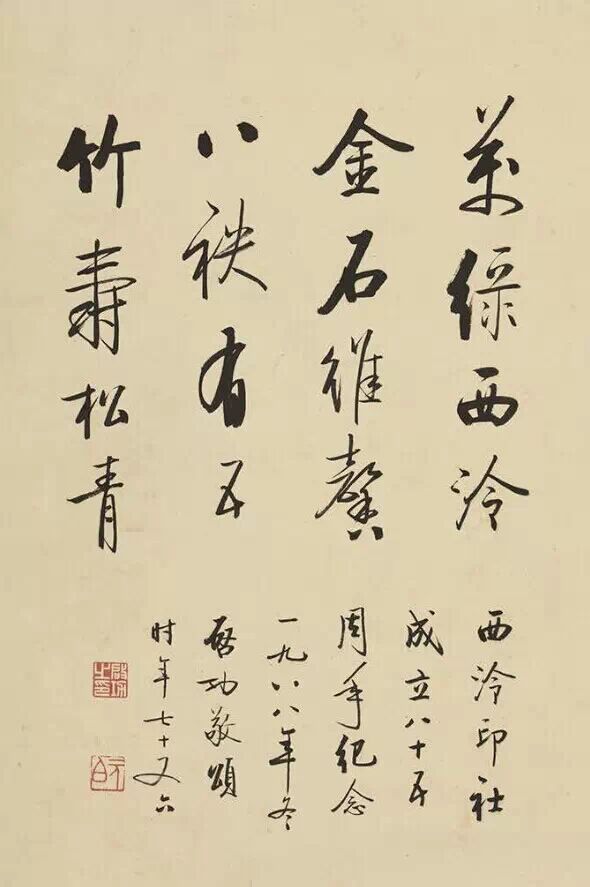 萬緑西泠
金石維馨
八秩有五
竹壽松青
西泠印社
成立八十五
周年紀念
一九八八年冬
啓功敬頌
时年七十又六
啓功之印
元白